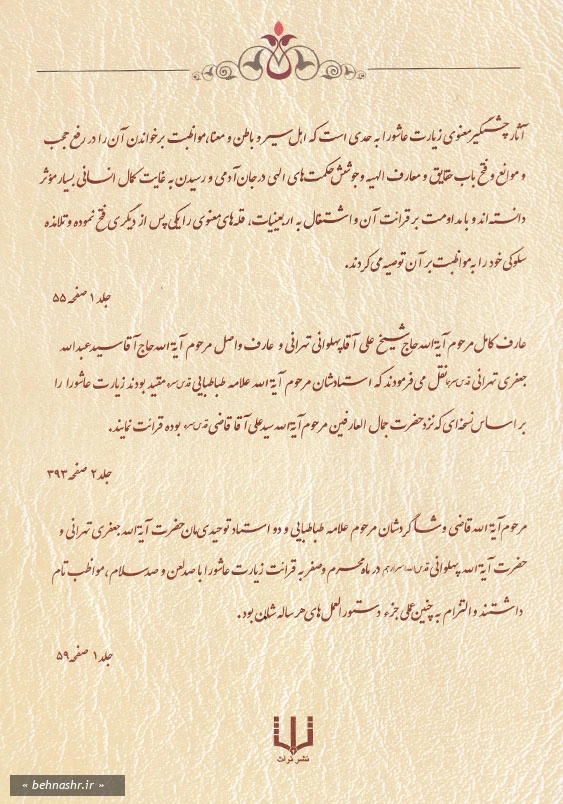 آثار چشمگیر معنوی زیارت عاشورا به حدی است که اهل سیر و باطن و معنا، مواظبت بر خواندن آن را در رفع حجب
و موانع و فتح باب حقایق و معارف الهیه و جوشش حکمت‌های الهی در جان آدمی و رسیدن به غایت کمال انسانی بسیار مؤثر
دانسته‌اند و با مداومت بر قرائت آن و اشتغال به اربعینیات، قله‌های معنوی را یکی پس از دیگری فتح نموده و تلامذه
سلوکی خود را به مواظبت بر آن توصیه می‌کردند.
جلد ۱ صفحه ۵۵
عارف کامل مرحوم آیة الله حاج شیخ علی آقا پهلوانی تهرانی و عارف واصل مرحوم آیة الله حاج آقا سید عبدالله
جعفری تهرانی قدس سرهما نقل می‌فرمودند که استادشان مرحوم آیة الله علامه طباطبایی قدس سره مقید بودند زیارت عاشورا را
بر اساس نسخه‌ای که نزد حضرت جمال العارفین مرحوم آیة الله سید علی آقا قاضی قدس سره بوده قرائت نمایند.
جلد ۲ صفحه ۳۹۳
مرحوم آیة الله قاضی و شاگردشان مرحوم علامه طباطبایی و دو استاد توحیدی‌مان حضرت آیة الله جعفری تهرانی و
حضرت آیة الله پهلوانی قدس الله اسرارهم در ماه محرم و صفر به قرائت زیارت عاشورا با صد لعن و صد سلام، مواظب تام
داشتند و التزام به چنین عملی جزء دستورالعمل‌های هر ساله شان بود.
جلد ۱ صفحه ۵۹
نشر تراث
« behnashr.ir »